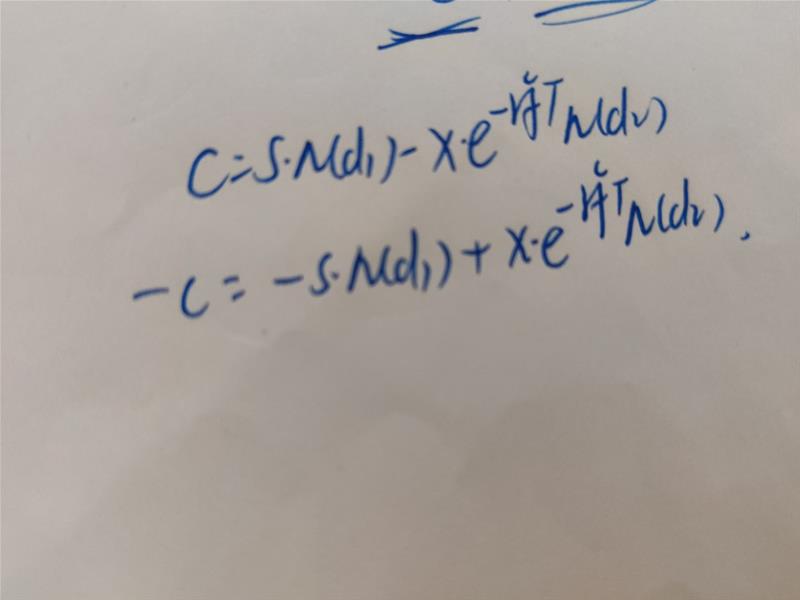 C=S·N(d₁)-X·e^{-r_f^c T}N(d₂)
-C=-S·N(d₁)+X·e^{-r_f^c T}N(d₂).